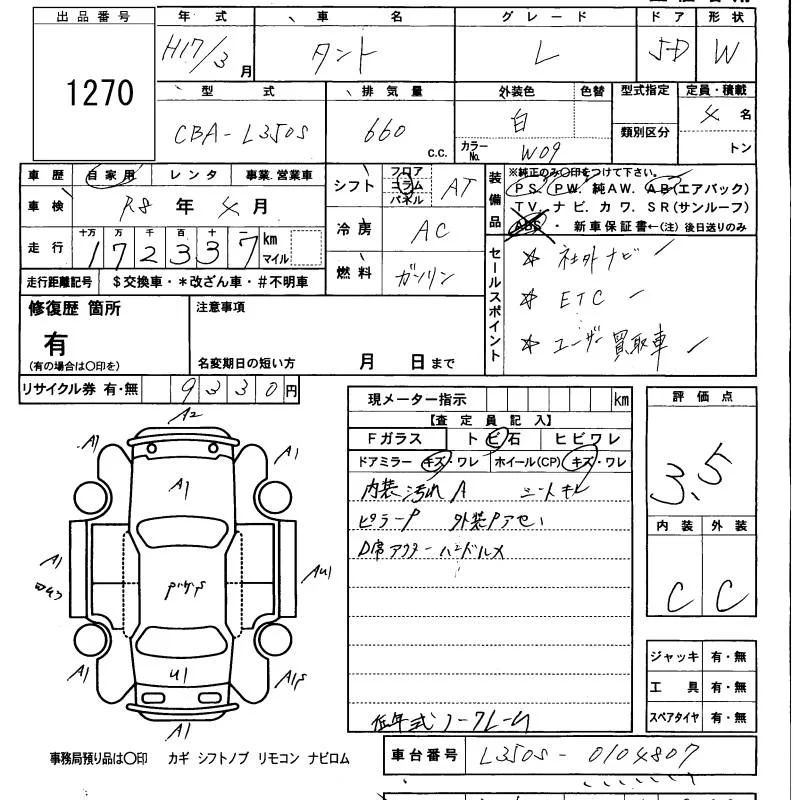 出品番号 年式 車名 グレード ドア 形状
1270 H17/3月 タント L 5D W
型式 排気量 外装色 色替 型式指定 定員・積載
CBA-L350S 660 c.c. 白 類別区分 4名
カラーNo. W09 トン
車歴 自家用 レンタ 事業.営業車
車検 R8年4月
走行 十万 万 千 百 十 一 km マイル
172337
走行距離記号 $交換車・*改ざん車・#不明車
シフト フロア コラム パネル AT
冷房 AC
燃料 ガソリン
装備品 ※純正のみ〇印をつけて下さい。
PS. PW. 純AW. AB(エアバック)
TV. ナビ. カワ. SR(サンルーフ)
ABS・新車保証書←(注)後日送りのみ
セールスポイント
☆ 社外ナビ
☆ ETC
☆ ユーザー買取車
修復歴 箇所
有
(有の場合は〇印を)
注意事項
名変期日の短い方 月 日まで
リサイクル券 有・無 9330円
現メーター指示 km
【査定員記入】
Fガラス トビ石 ヒビワレ
ドアミラー キズ・ワレ ホイール(CP) キズ・ワレ
内装汚れ A シートキレ
ピラーP
D席アウターハンドルX
低年式ノークレーム
評価点
3.5
内装 外装
C C
ジャッキ 有・無
工具 有・無
スペアタイヤ 有・無
A2
A1 A1
A1
A1 AU1
U1
A1 A1S
A1
事務局預り品は〇印 カギ シフトノブ リモコン ナビロム
車台番号 L350S-0104807